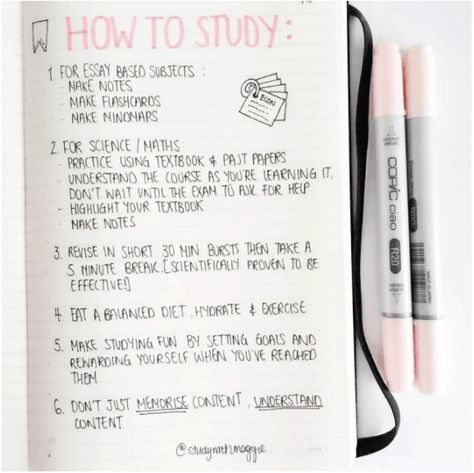 HOW TO STUDY:
1. FOR ESSAY BASED SUBJECTS :
- MAKE NOTES
- MAKE FLASHCARDS
- MAKE MINDMAPS
ECON
2. FOR SCIENCE / MATHS:
- PRACTICE USING TEXTBOOK & PAST PAPERS
- UNDERSTAND THE COURSE AS YOU'RE LEARNING IT,
DON'T WAIT UNTIL THE EXAM TO ASK FOR HELP
- HIGHLIGHT YOUR TEXTBOOK
- MAKE NOTES
3. REVISE IN SHORT 30 MIN BURSTS THEN TAKE A
5 MINUTE BREAK. [SCIENTIFICALLY PROVEN TO BE
EFFECTIVE!]
4. EAT A BALANCED DIET, HYDRATE & EXERCISE
5. MAKE STUDYING FUN BY SETTING GOALS AND
REWARDING YOURSELF WHEN YOU'VE REACHED
THEM.
6. DON'T JUST MEMORISE CONTENT, UNDERSTAND
CONTENT.
@studywithmaggie
COPIC ciao
R20